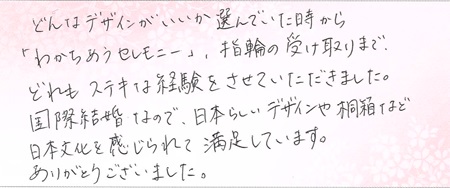 どんなデザインがいいか選んでいた時から
「わかちあうセレモニー」、指輪の受け取りまで、
どれもステキな経験をさせていただきました。
国際結婚なので、日本らしいデザインや桐箱など
日本文化を感じられて満足しています。
ありがとうございました。